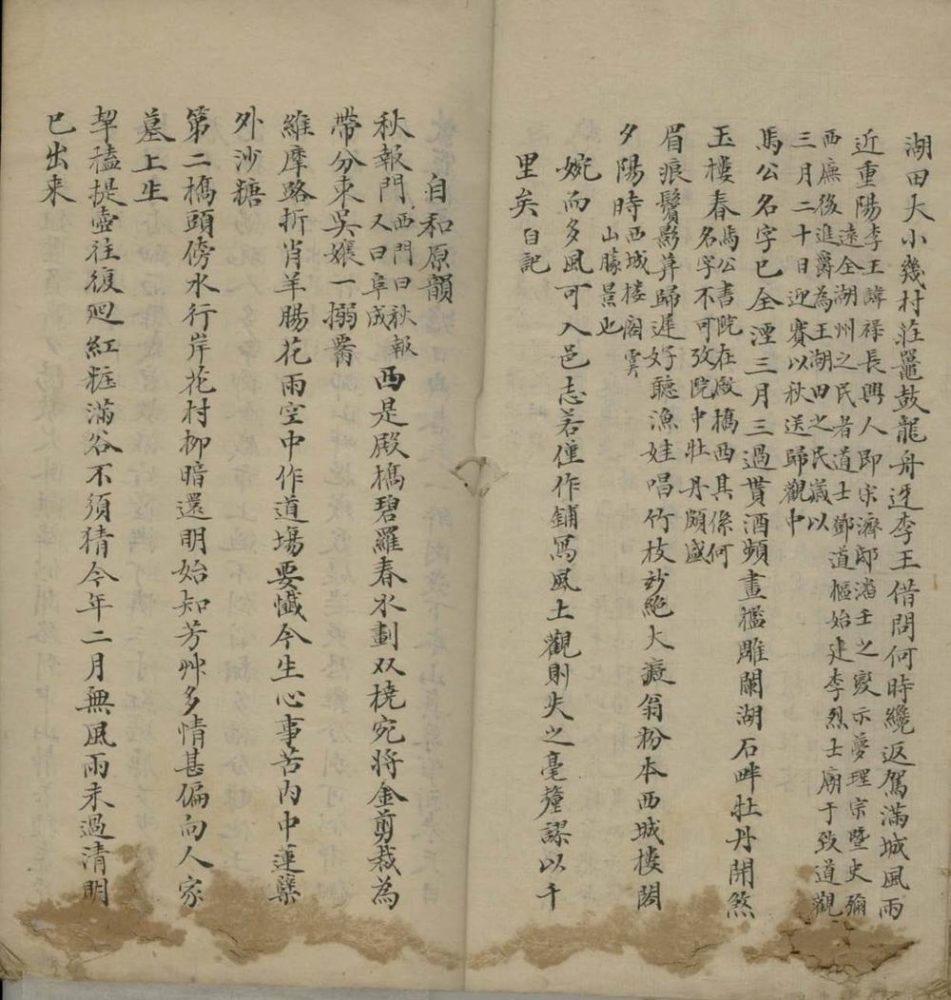 湖田大小幾村莊鼉鼓龍舟迓李王借問何時纔返駕滿城風雨
近重陽李王諱祿長興人即宋濟邸潘壬之變示夢理宗暨史彌
遠全湖州之民者道士鄧道樞始建李烈士廟于致道觀
西廉後進爵為王湖田之民歲以
三月二十日迎賽以秋送歸觀中
馬公名字已全湮三月三過貰酒頻畫檻雕闌湖石畔牡丹開煞
玉樓春馬公書院在殿橋西其係何
名字不可攷院中牡丹頗盛
眉痕鬢影葬歸遲好聽漁娃唱竹枝妙絕大癡翁粉本西城樓閣
夕陽時西城樓閣霁
山勝景也
婉而多風可入邑志若僅作鋪寫風土觀則失之毫釐謬以千
里矣自記
自和原韻
秋報門西門曰秋報
又曰阜成西是殿橋碧羅春水劃双橈宛将金剪裁為
帶分束吳孃一搦罾
維摩路折肖羊腸花雨空中作道場要懺今生心事苦内中蓮蘖
外沙糖
第二橋頭傍水行岸花村柳暗還明始知芳艸多情甚偏向人家
墓上生
挈榼提壺往復迴紅粧滿谷不須猜今年二月無風雨未過清明
已出来